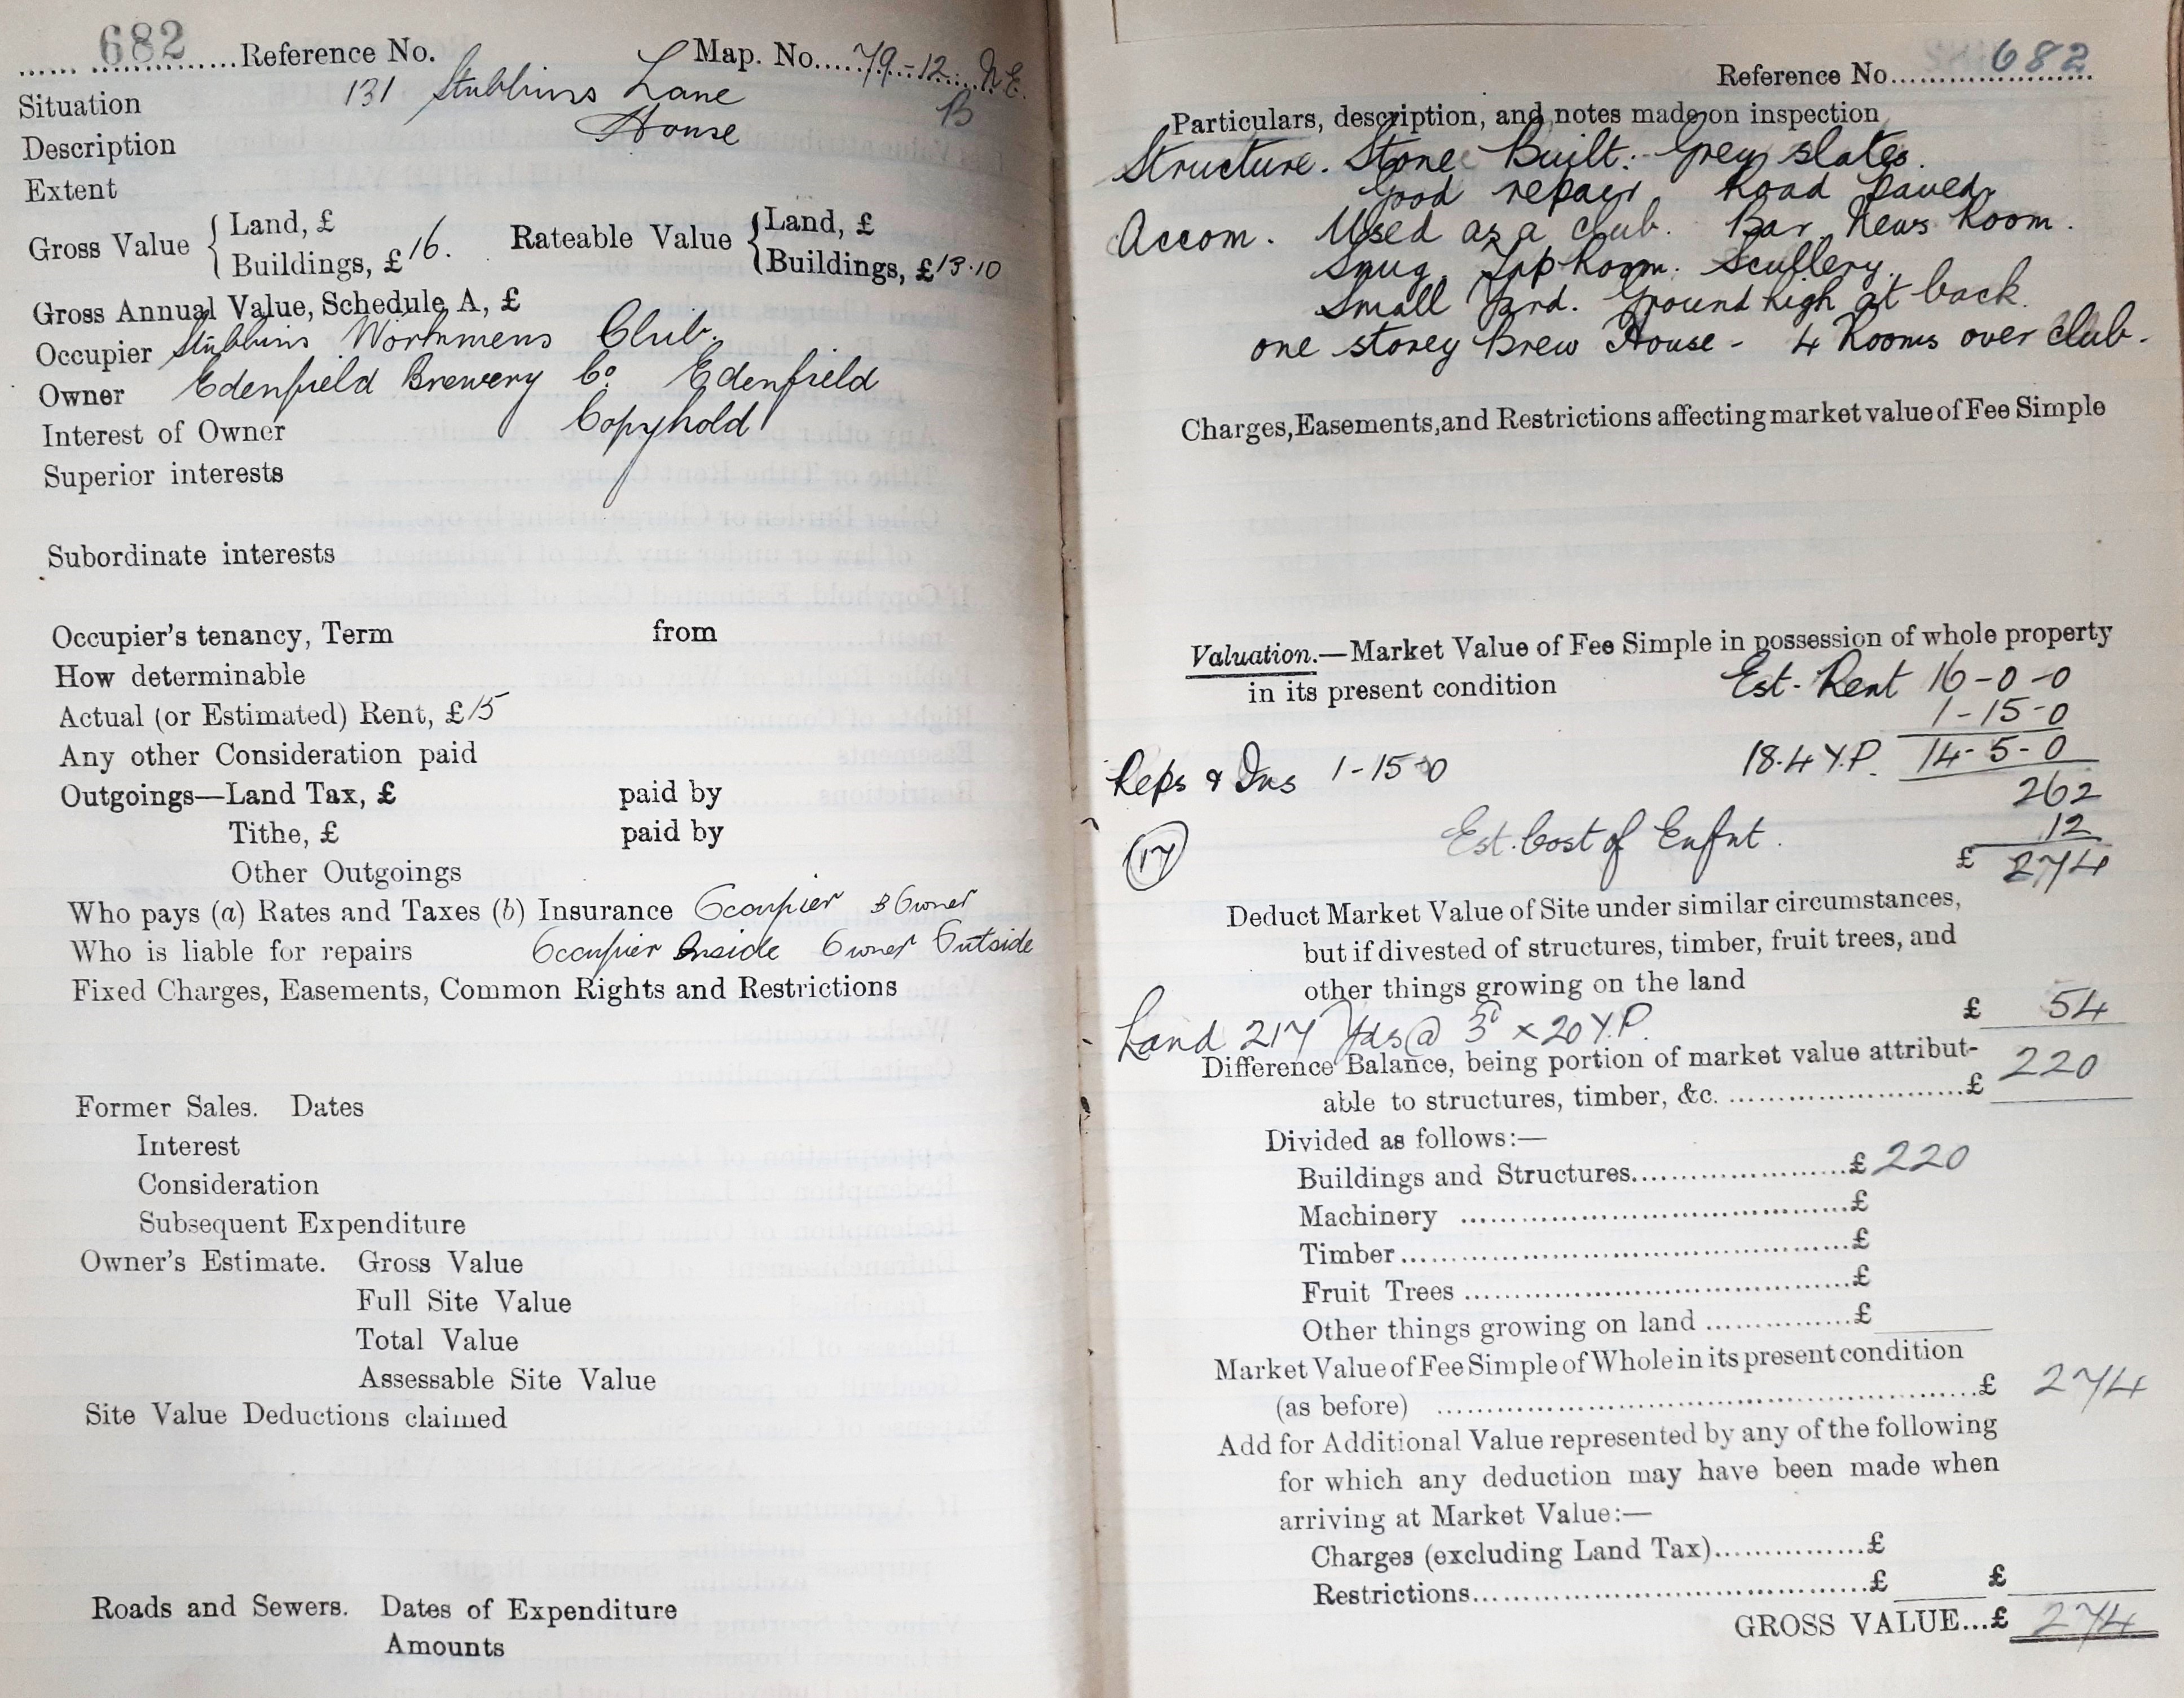 682 Reference No. Map. No. 79-12 N.E.
Situation 131 Stubbins Lane B
Description House
Extent
Gross Value { Land, £ Rateable Value { Land, £
Buildings, £16. Buildings, £13.10
Gross Annual Value, Schedule A, £
Occupier Stubbins Workmens Club.
Owner Edenfield Brewery Co Edenfield
Interest of Owner Copyhold
Superior interests
Subordinate interests
Occupier's tenancy, Term from
How determinable
Actual (or Estimated) Rent, £15
Any other Consideration paid
Outgoings—Land Tax, £ paid by
Tithe, £ paid by
Other Outgoings
Who pays (a) Rates and Taxes (b) Insurance Occupier B Owner
Who is liable for repairs Occupier Inside Owner Outside
Fixed Charges, Easements, Common Rights and Restrictions
Former Sales. Dates
Interest
Consideration
Subsequent Expenditure
Owner's Estimate. Gross Value
Full Site Value
Total Value
Assessable Site Value
Site Value Deductions claimed
Roads and Sewers. Dates of Expenditure
Amounts
Reference No. 682
Particulars, description, and notes made on inspection
Structure. Stone Built: Grey slates.
Good repair Road Paved
Accom. Used as a club. Bar, News Room.
Snug, Tap Room. Scullery.
Small Yard. Ground high at back.
one storey Brew House - 4 Rooms over club.
Charges, Easements, and Restrictions affecting market value of Fee Simple
Valuation.—Market Value of Fee Simple in possession of whole property
in its present condition Est. Rent 16-0-0
1-15-0
Reps & Ins 1-15-0 18.4 Y.P. 14-5-0
262
17 Est. Cost of Enfnt. 12
£ 274
Deduct Market Value of Site under similar circumstances,
but if divested of structures, timber, fruit trees, and
other things growing on the land
Land 217 Yds @ 3d x 20 Y.P. £ 54
Difference Balance, being portion of market value attribut-
able to structures, timber, &c. £ 220
Divided as follows:—
Buildings and Structures £ 220
Machinery £
Timber £
Fruit Trees £
Other things growing on land £
Market Value of Fee Simple of Whole in its present condition
(as before) £ 274
Add for Additional Value represented by any of the following
for which any deduction may have been made when
arriving at Market Value:—
Charges (excluding Land Tax) £
Restrictions £ £
GROSS VALUE...£ 274